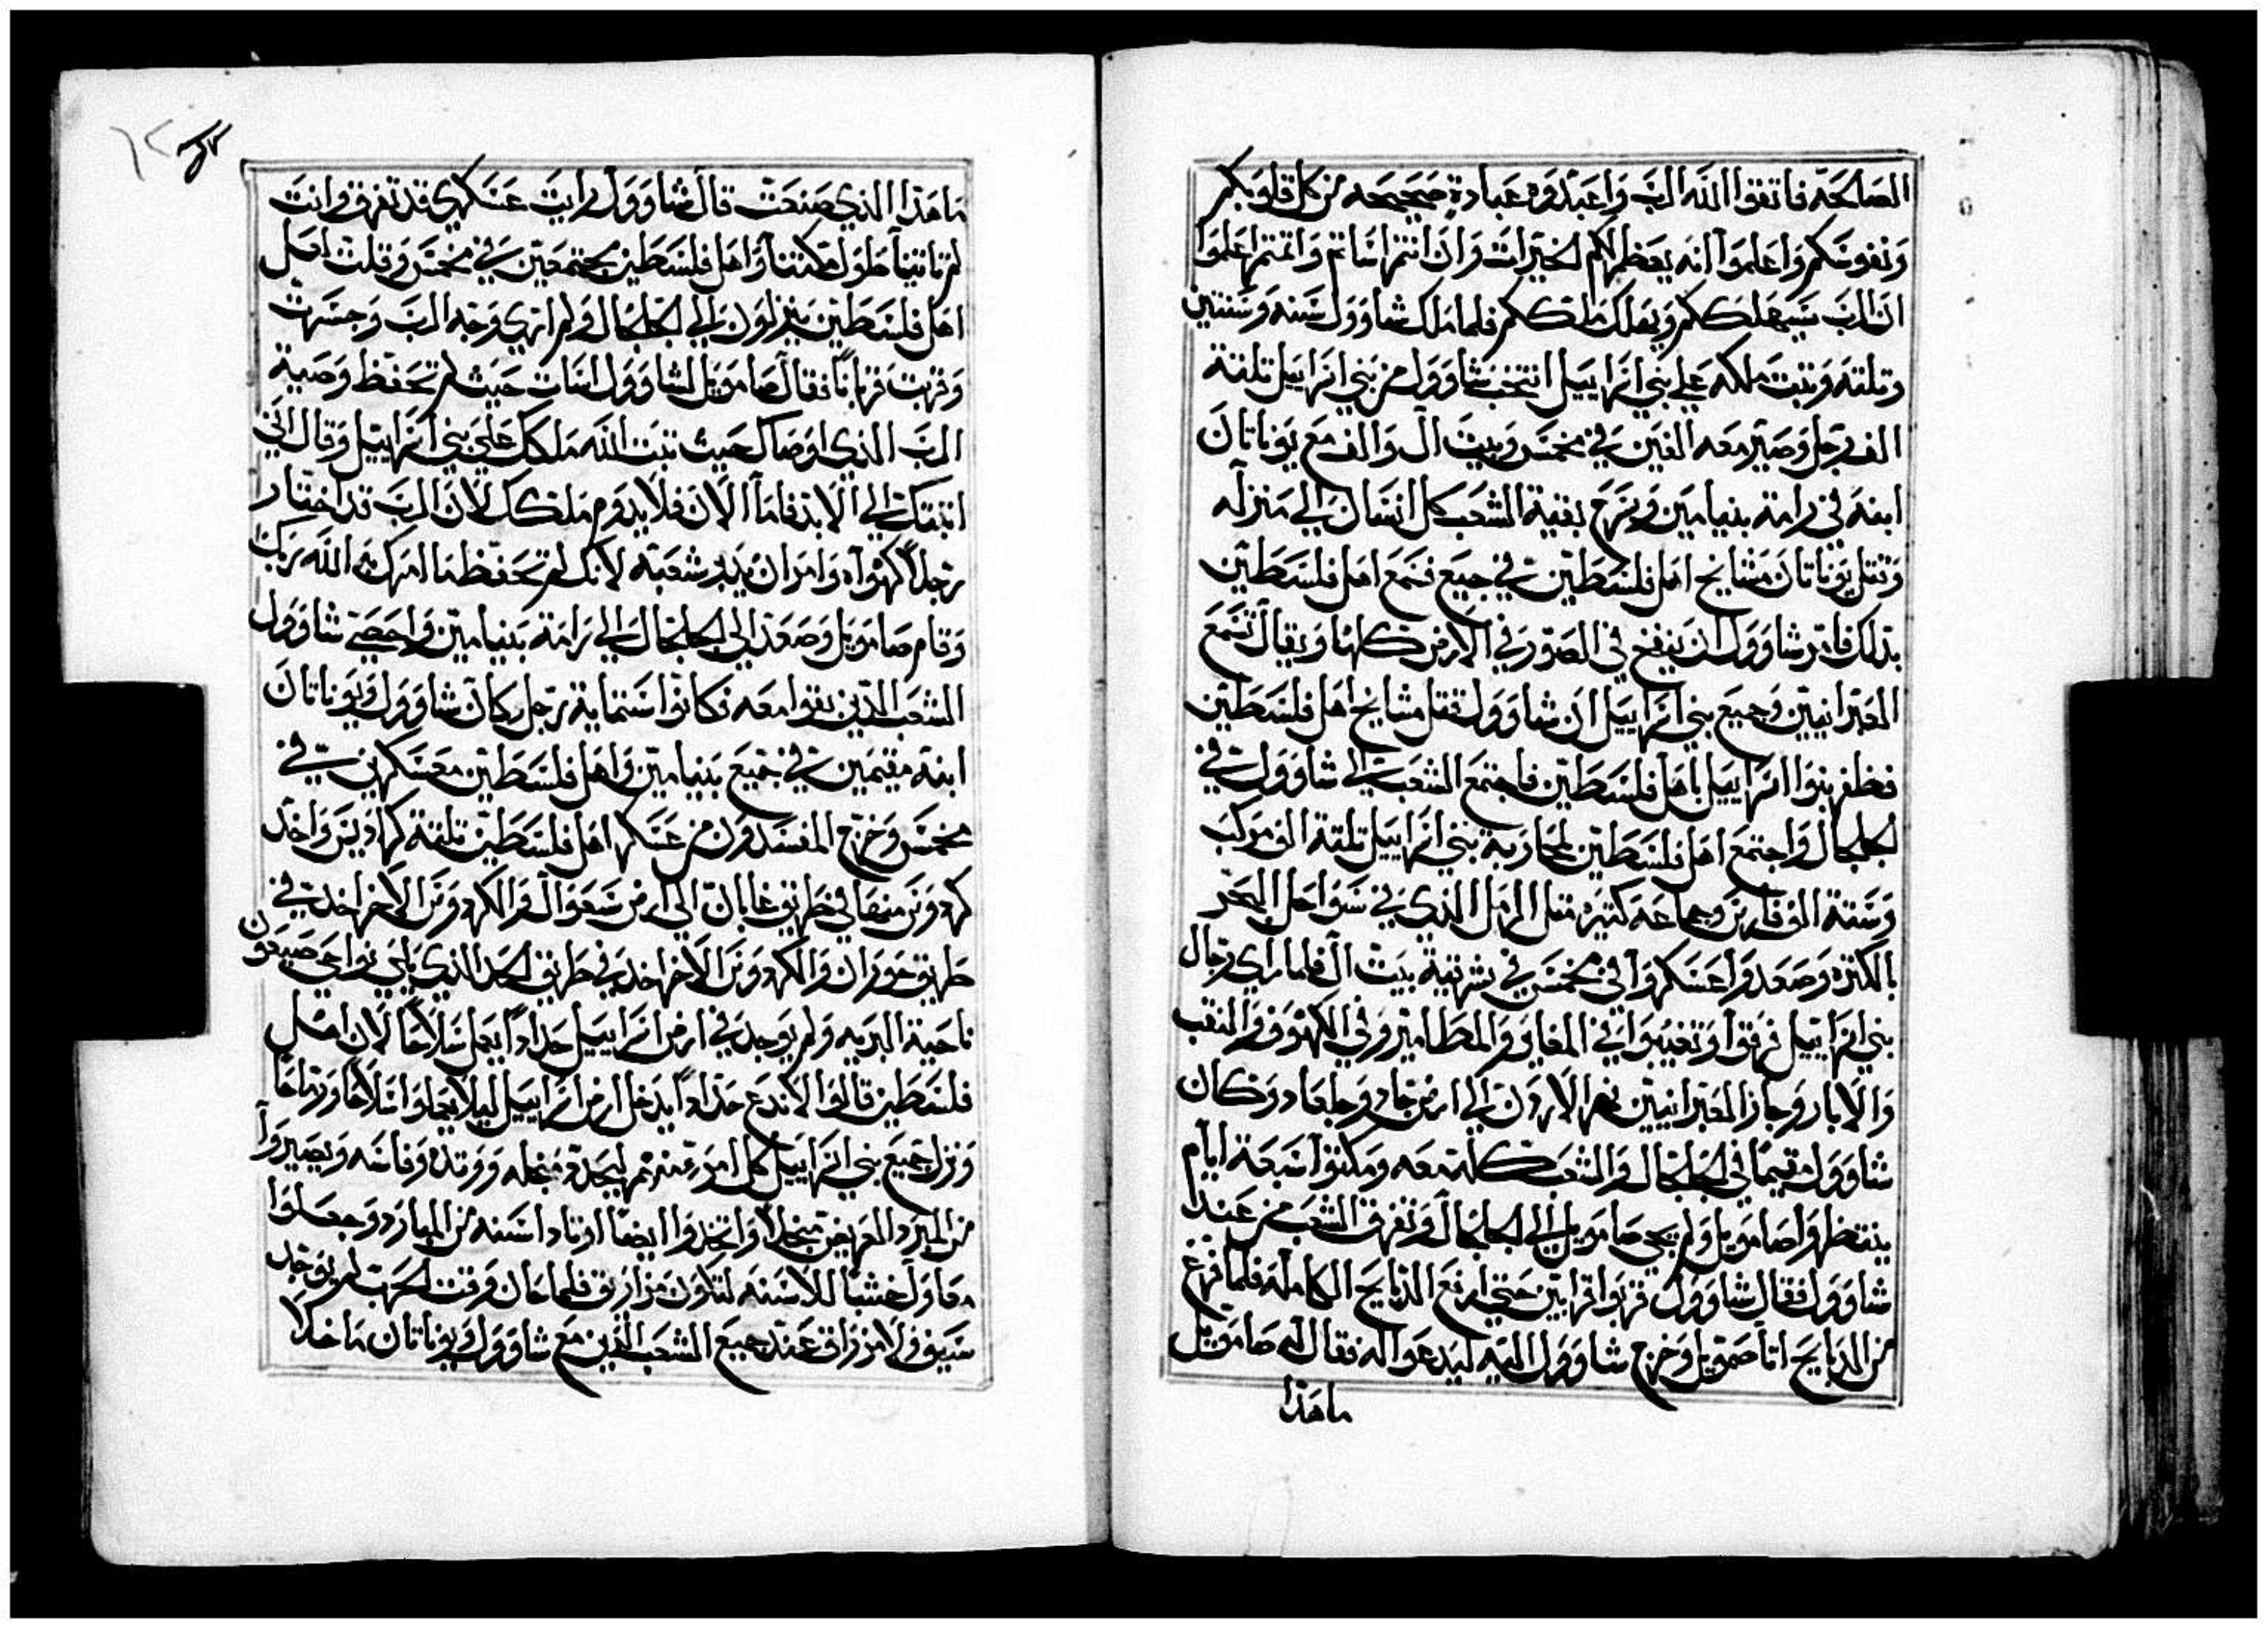 الصالحه فاتقوا الله الرب واعبدوه عبادة صحيحه من كل قلوبكم
ونفوسكم واعلموا انه يعظم لكم الخيرات وان انتم اساتم واثمتم اعلموا
ان الرب سيهلككم ويهلك ملككم فلما ملك شاوول سنه وسنتين
وتلته وتبت ملكه علي بني اسراييل انتخب شاوول من بني اسراييل تلتة
الف رجل وصير معه الفين في مخمس وبيت ال والف مع يوناتان
ابنه في رامة بنيامين وسرح بقية الشعب كل انسان الي منزله
وقتل يوناتان مشايخ اهل فلسطين في جبع فسمع اهل فلسطين
بذلك فامر شاوول ان ينفخ في الصور في الارض كلها ويقال تسمع
العبرانيين وجميع بني اسراييل ان شاوول قتل مشايخ اهل فلسطين
فظفر بنوا اسراييل باهل فلسطين فاجتمع الشعب الي شاوول في
الجلجال واجتمع اهل فلسطين لمحاربة بني اسراييل تلتة الف مركب
وستة الف فارس وجماعه كتيره متل الرمل الذي في سواحل البحر
بالكتره وصعدوا عسكروا في مخمس في شرقية بيت ال فلما راي رجال
بني اسراييل فرقوا وتغيبوا في المغاير والمطامير وفي الكهوف والنقب
والابار وجاز العبرانيين نهر الاردن الي ارض جاد وجلعاد وكان
شاوول مقيما في الجلجال والشعب كله معه ومكتوا سبعة ايام
ينتظروا صامويل ولم يجي صامويل الي الجلجال وتفرق الشعب من عند
شاوول فقال شاوول قربوا قرابين حتي ارفع الذبايح الكامله فلما فرغ
من الذبايح اتا صمويل وخرج شاوول اليه ليدعوا له فقال له صامويل
ماهذا
ماهذا الذي صنعت قال شاوول رايت عسكري قد تفرق وانت
لم تاتينا طول مكتنا واهل فلسطين مجتمعين في مخمس وقلت لعل
اهل فلسطين ينزلون الي الجلجال ولم اري وجه الرب وجسرت
وقربت قربانا فقال صامويل لشاوول اسات حيث لم تحفظ وصية
الرب الذي اوصاك حيث تبت الله ملكك علي بني اسراييل وقال اني
اتبتك الي الابد فاما الان فلا يدوم ملكك لان الرب قد اختار
رجلا كهواه وامر ان يدبر شعبه لانك لم تحفظ ما امرك الله ربك
وقام صامويل وصعد الي الجلجال الي رامة بنيامين واحصي شاوول
الشعب الذين بقوا معه فكانوا ستماية رجل وكان شاوول ويوناتان
ابنه مقيمين في جميع بنيامين واهل فلسطين معسكرين في
مخمس وخرج المفسدون من عسكر اهل فلسطين تلتة كراديس واخذ
كردوس منها في طريق غابان الي ارض سعوال والكردوس الاخر اخد في
طريق حوران والكردوس الاخر اخد في طريق الحد الذي يلي نواحي صيعون
ناحية البريه ولم يوجد في ارض اسراييل حدادا يعمل سلاحا لان اهل
فلسطين قالوا لا ندع حدادا يدخل ارض اسراييل ليلا يعملوا سلاحا ورماحا
ونزل جميع بني اسراييل كل امرء منهم ليحد منجله ووتده وفاسه ويصيروا
من المبرد العريض منجلا واتخذوا ايضا اوتادا اسنه من المبارد وجعلوا
معاول خشبا للاسنه لتكون مزاريق فلما حان وقت الحرب لم يوجد
سيف ولا مزراق عند جميع الشعب الذين مع شاوول ويوناتان ما خلا